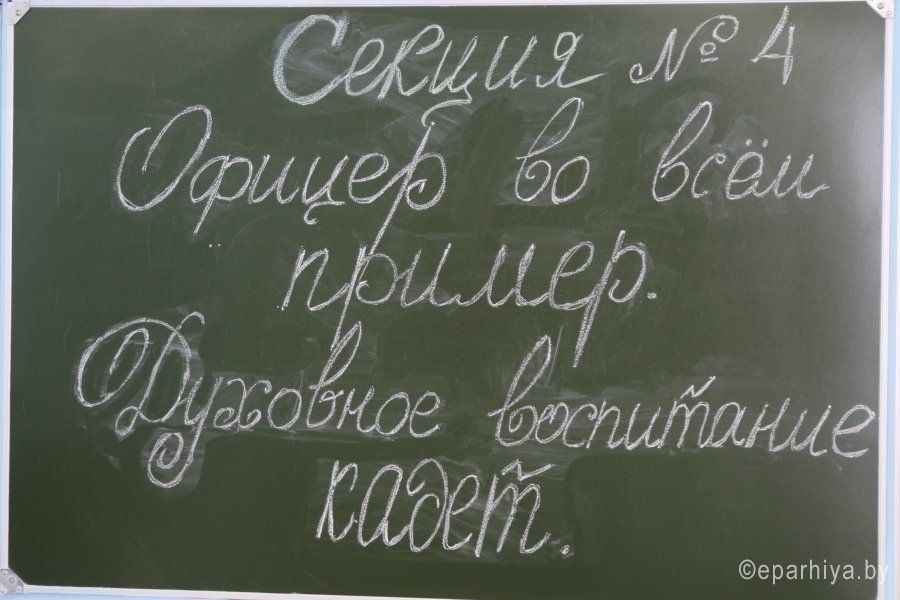 Секция № 4
Офицер во всём
пример.
Духовное воспитание
кадет.
©eparhiya.by